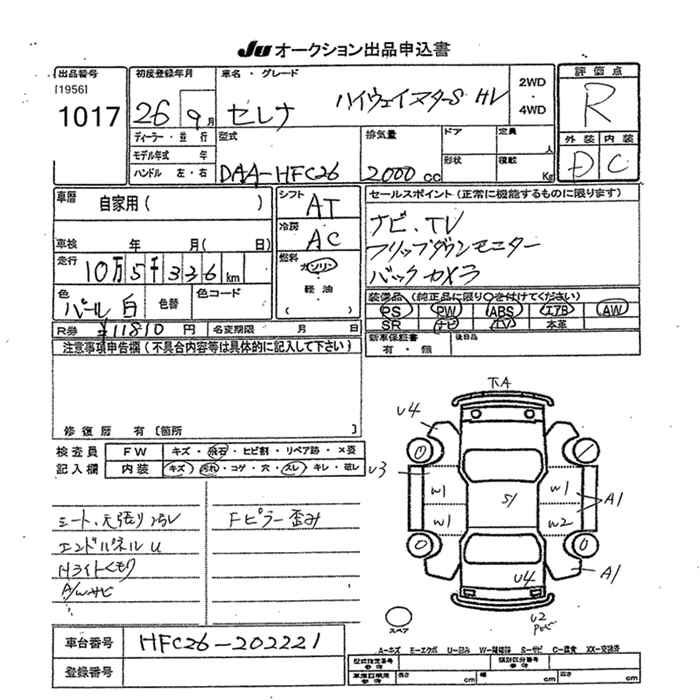 JU オークション出品申込書
出品番号
[1956]
1017
初度登録年月
26 9月
ディーラー・並行
モデル年式 年
ハンドル 左・右
車名・グレード
セレナ ハイウェイスターS HV
2WD
・
4WD
型式
DAA-HFC26
排気量
2000cc
ドア
定員
人
形状
積載
Kg
評価点
R
外装 内装
D C
車歴
自家用( )
車検 年 月( 日)
走行
10万5千336km
色
パール白
色替
色コード
R券 ¥11810円
名変期限 月 日
シフト
AT
冷房
AC
燃料
ガソリン
・
軽油
( )
セールスポイント(正常に機能するものに限ります)
ナビ、TV
フリップダウンモニター
バックカメラ
装備品(純正品に限り○を付けてください)
PS PW ABS エアB AW
SR ナビ TV 本革
新車保証書
有・無
後日品
注意事項申告欄(不具合内容等は具体的に記入して下さい)
修復歴 有〔箇所
検査員
記入欄
FW キズ・飛石・ヒビ割・リペア跡・×要
内装 キズ・汚れ・コゲ・穴・スレ・キレ・破レ
シート、天張り
エンドパネルU
Hライトくもり
A/Wサビ
Fピラー歪み
下A
U4
U3
W1
W1
S1
W1
W2
A1
A1
U4
U2
スペア
車台番号 HFC26-202221
登録番号
A-キズ E-エクボ U-凹み W-補修跡 S-サビ C-腐食 XX-交換済
型式指定番号
参考
類別区分番号
参考
長さ cm
巾 cm
高さ cm